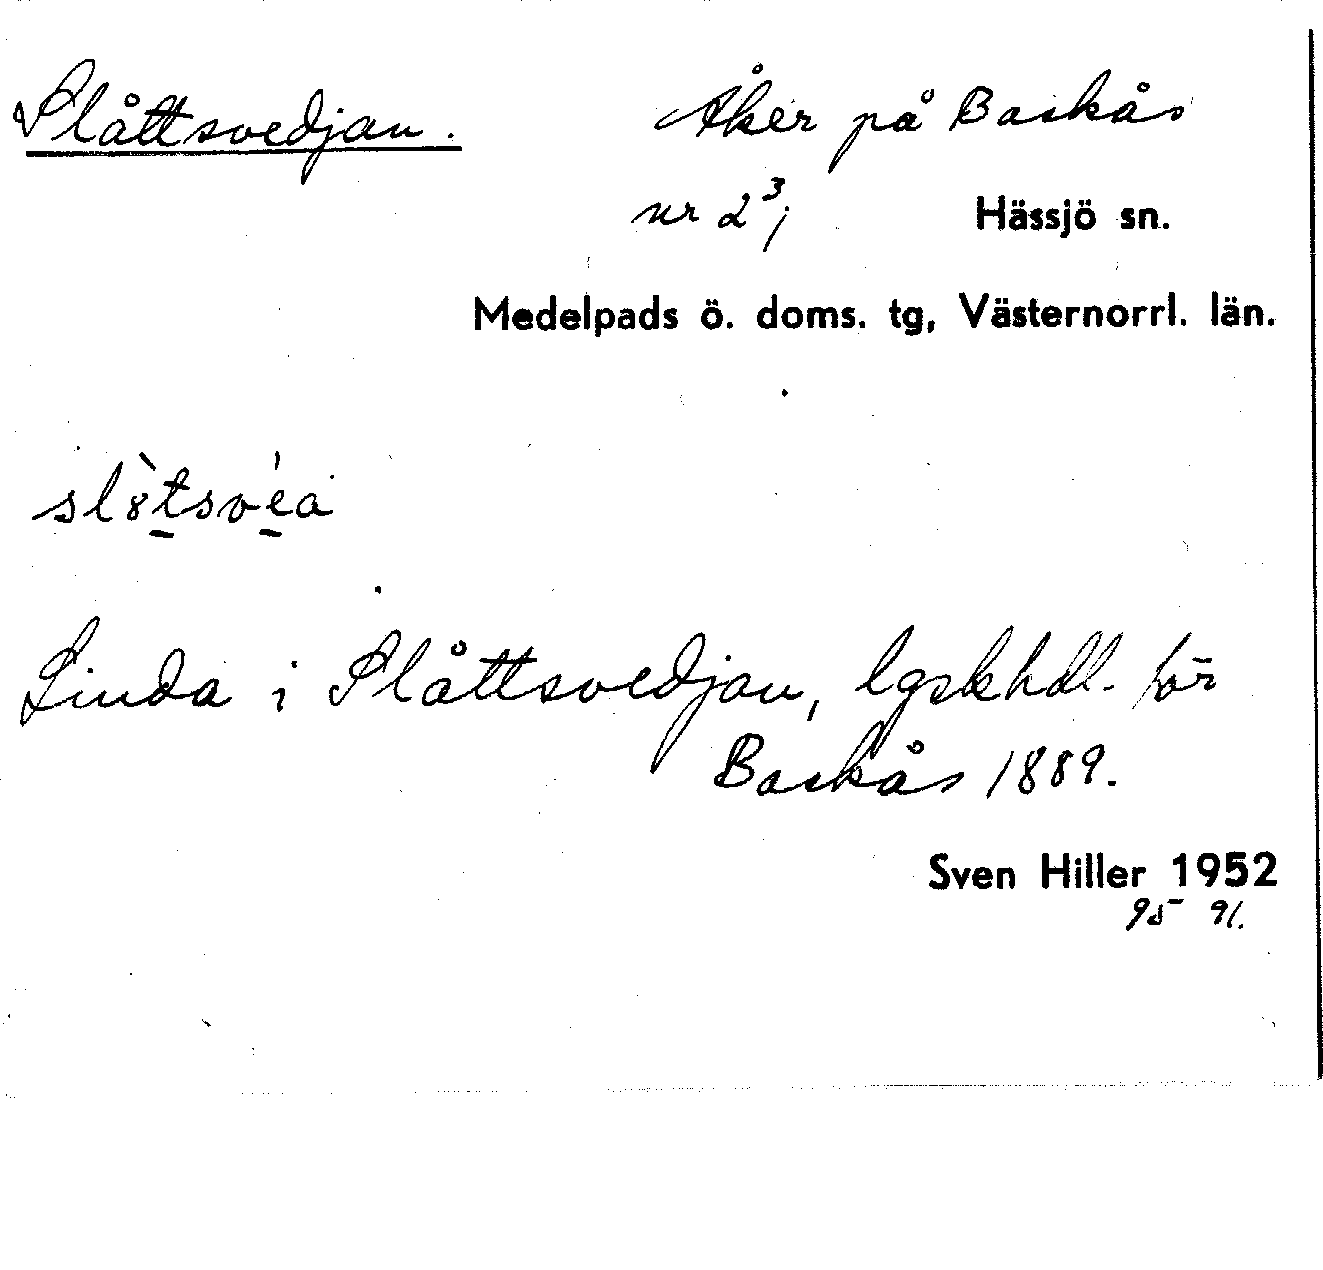 Slåttsvedjan.
Åker på Baskås
nr 2³,
Hässjö sn.
Medelpads ö. doms. tg, Västernorrl. län.
Linda i Slåttsvedjan, lgskhdl. för
Baskås 1889.
Sven Hiller 1952
95 91.